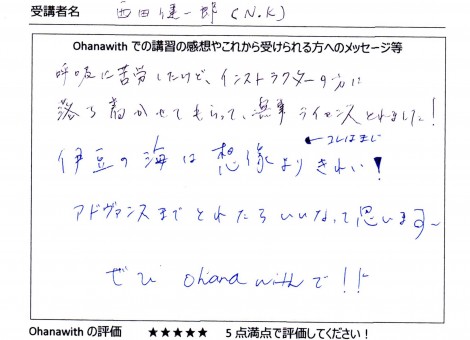 受講者名 西田健一郎(N.K)
Ohanawith での講習の感想やこれから受けられる方へのメッセージ等
呼吸に苦労したけど、インストラクターの方に
落ち着かせてもらって、無事 ライセンスとれました!
←コレはまじ
伊豆の海は想像よりきれい!
アドヴァンスまでとれたらいいなって思います~
ぜひ ohana withで!!
Ohanawith の評価 ★★★★★ 5 点満点で評価してください!